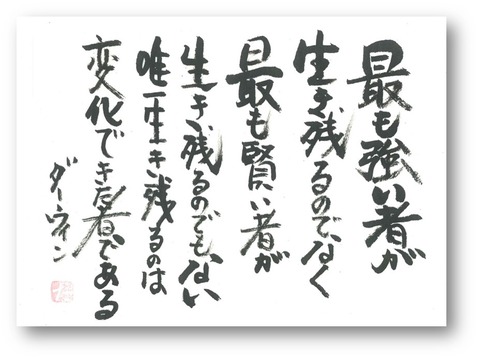 最も強い者が
生き残るのでなく
最も賢い者が
生き残るのでもない
唯一生き残るのは
変化できた者である
ダーウィン